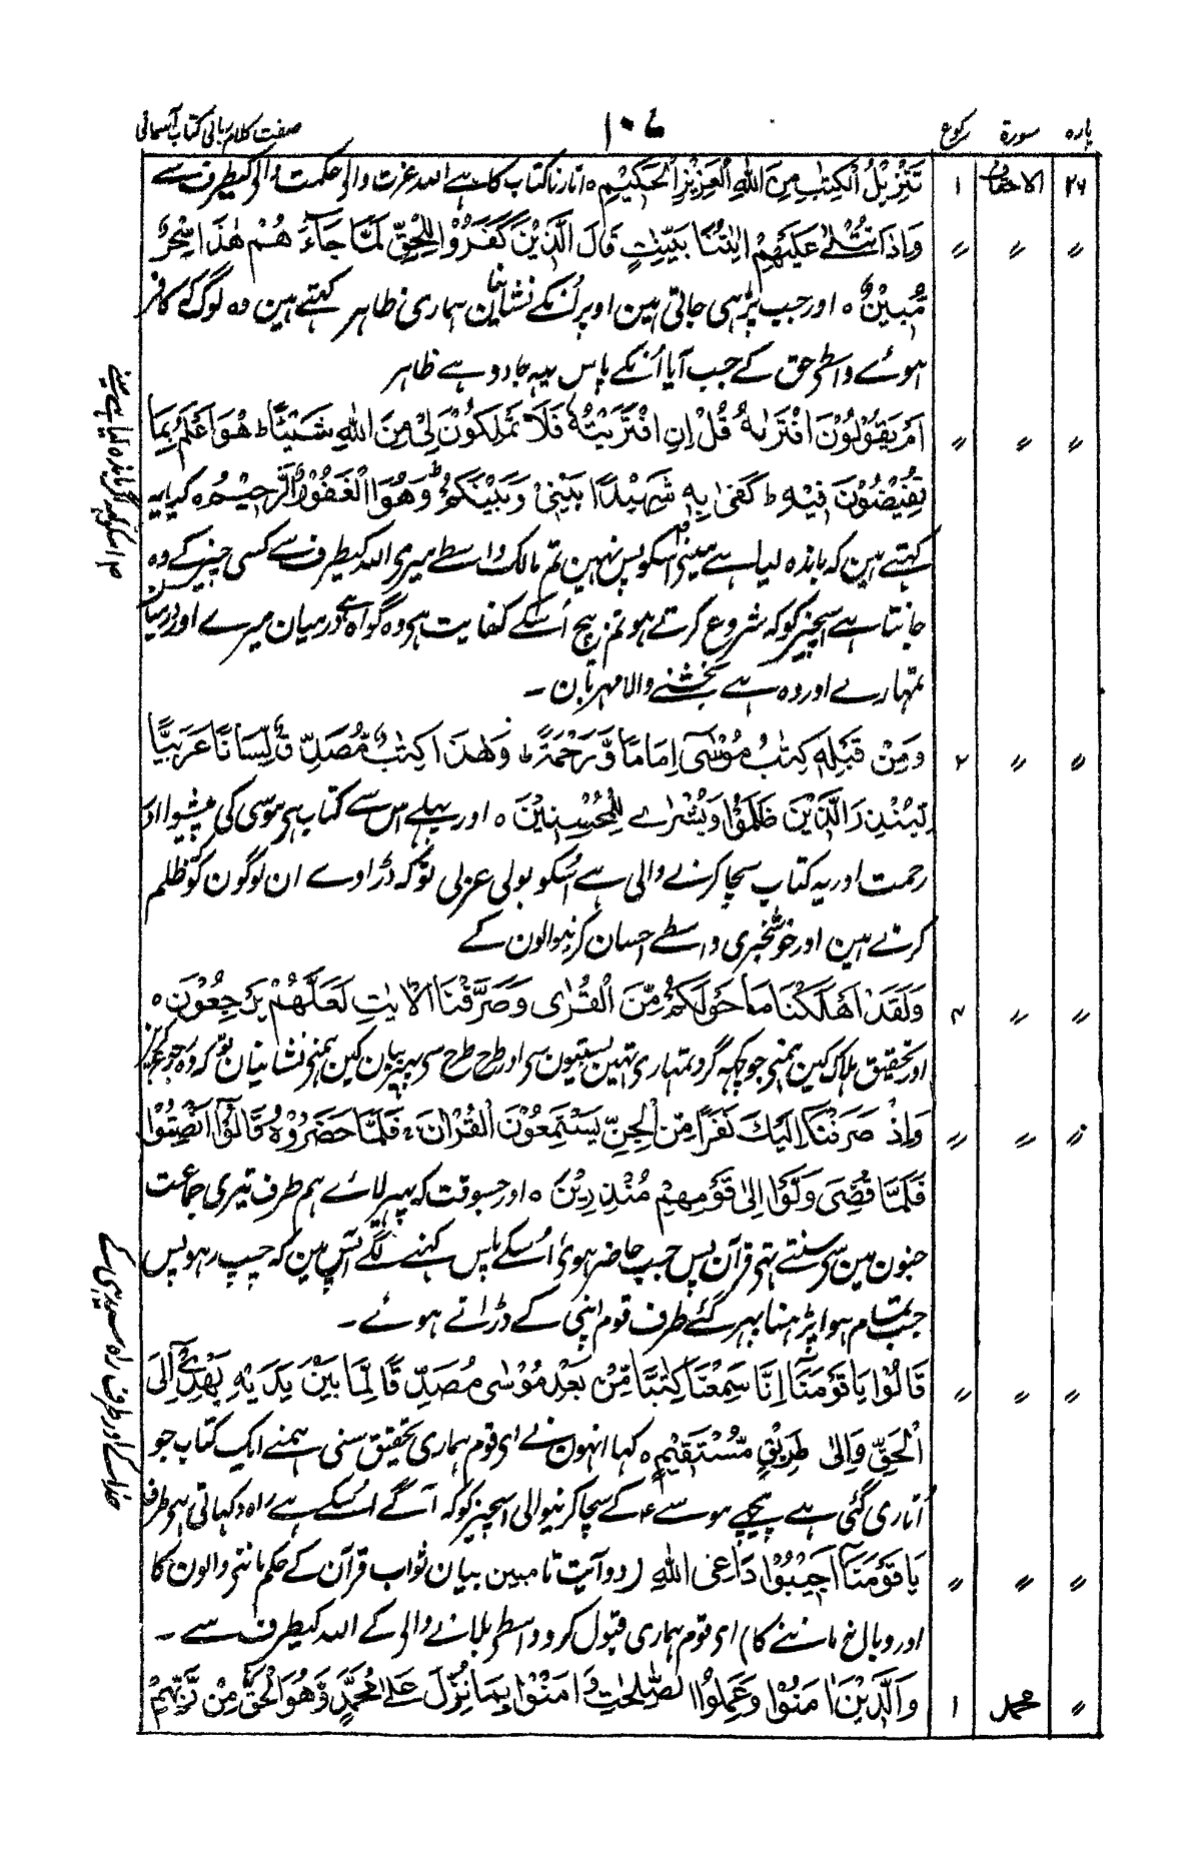 پارہ سورۃ رکوع ۱۰۷ صفت کلام ربانی کتاب آسمانی
۲۶ الاحقاف ۱ تَنْزِيْلُ الْكِتٰبِ مِنَ اللّٰهِ الْعَزِيْزِ الْحَكِيْمِ ہ اتارنا کتاب کا ہے اللہ عزت والی حکمت والی کیطرف سے
〃 〃 〃 وَاِذَا تُتْلٰى عَلَيْهِمْ اٰيٰتُنَا بَيِّنٰتٍ قَالَ الَّذِيْنَ كَفَرُوْا لِلْحَقِّ لَمَّا جَآءَ هُمْ هٰذَا سِحْرٌ
مُّبِيْنٌ ہ اور جب پڑہی جاتی ہین اوپر اُنکے نشانیان ہماری ظاہر کہتے ہین وہ لوگ کہ کافر
ہوئے واسطی حق کے جب آیا اُنکے پاس یہہ جادو ہے ظاہر
〃 〃 〃 اَمْ يَقُوْلُوْنَ افْتَرٰىهُ قُلْ اِنِ افْتَرَيْتُهٗ فَلَا تَمْلِكُوْنَ لِىْ مِنَ اللّٰهِ شَيْئًا ط هُوَ اَعْلَمُ بِمَا
تُفِيْضُوْنَ فِيْهِ ط كَفٰى بِهٖ شَهِيْدًا بَيْنِىْ وَبَيْنَكُمْ ط وَهُوَ الْغَفُوْرُ الرَّحِيْمُ ہ کیا یہہ
کہتے ہین کہ باندہ لیا ہے مینی اسکو پس نہین تم مالک واسطے میری اللہ کیطرف سے کسی چیز کے وہ
جانتا ہے اسچیز کو کہ شروع کرتے ہو تم بیچ اُسکے کفایت ہی وہ گواہ ہے درمیان میرے اور درمیان
تمہارے اور وہ ہے بخشنے والا مہربان ۔
〃 〃 ۲ وَمِنْ قَبْلِهٖ كِتٰبُ مُوْسٰٓى اِمَامًا وَّرَحْمَةً ط وَهٰذَا كِتٰبٌ مُّصَدِّقٌ لِّسَانًا عَرَبِيًّا
لِّيُنْذِرَ الَّذِيْنَ ظَلَمُوْا وَبُشْرٰے لِلْمُحْسِنِيْنَ ہ اور پہلے اس سے کتاب ہی موسی کی پیشوا اور
رحمت اور یہ کتاب سچا کرنے والی ہے اُسکو بولی عربی توکہ ڈراوے ان لوگون کو ظلم
کرتے ہین اور خوشخبری واسطے احسان کرنیوالون کے
〃 〃 ۴ وَلَقَدْ اَهْلَكْنَا مَا حَوْلَكُمْ مِّنَ الْقُرٰى وَصَرَّفْنَا الْاٰيٰتِ لَعَلَّهُمْ يَرْجِعُوْنَ ہ
اور تحقیق ہلاک کین ہمنی جو کچہہ گرد تمہاری تہین بستیون سی اور طرح طرح سی پہیر بیان کین ہمنی نشانیان توکہ وہ رجوع کرین
〃 〃 〃 وَاِذْ صَرَفْنَا اِلَيْكَ نَفَرًا مِّنَ الْجِنِّ يَسْتَمِعُوْنَ الْقُرْاٰنَ ۚ فَلَمَّا حَضَرُوْهُ قَالُوْٓا اَنْصِتُوْا
فَلَمَّا قُضِىَ وَلَّوْا اِلٰى قَوْمِهِمْ مُّنْذِرِيْنَ ہ اور جسوقت کہ پہیر لائے ہم طرف تیری جماعت
جنون مین سی سنتے تہی قرآن پس جب حاضر ہوئے اُسکے پاس کہنے لگے آپس مین کہ چپ رہو پس
جب تمام ہوا پڑہنا پہر گئے طرف قوم اپنی کے ڈراتے ہوئے ۔
〃 〃 〃 قَالُوْا يَا قَوْمَنَآ اِنَّا سَمِعْنَا كِتٰبًا مِّنْ بَعْدِ مُوْسٰى مُصَدِّقًا لِّمَا بَيْنَ يَدَيْهِ يَهْدِىْٓ اِلَى
الْحَقِّ وَاِلٰى طَرِيْقٍ مُّسْتَقِيْمٍ ہ کہا انہون نے ای قوم ہماری تحقیق سنی ہمنے ایک کتاب جو
اُتاری گئی ہے پیچہے موسے ۴ کے سچا کرنیوالی اسچیز کو کہ آگے اُسکے ہے راہ دکہاتی ہی طرف
〃 〃 〃 يَا قَوْمَنَآ اَجِيْبُوْا دَاعِىَ اللّٰهِ (دو آیت تا مبین بیان ثواب قرآن کے حکم ماننے والون کا
اور وبال نہ ماننے کا) ای قوم ہماری قبول کرو واسطی بلانے والی کے اللہ کیطرف سے ۔
〃 محمد ۱ وَالَّذِيْنَ اٰمَنُوْا وَعَمِلُوا الصّٰلِحٰتِ وَاٰمَنُوْا بِمَا نُزِّلَ عَلٰى مُحَمَّدٍ وَّهُوَ الْحَقُّ مِنْ رَّبِّهِمْ
اسکو کہہ اگر باندہ لیا ہے مینے
خدا کے اور طرف راہ سیدہی کے